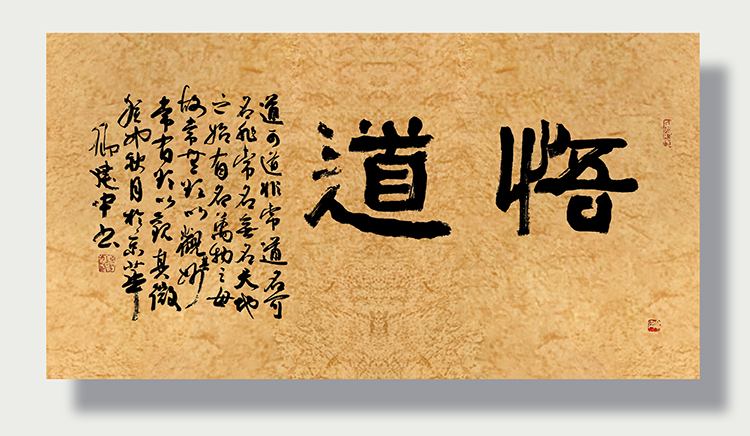 悟道
道可道非常道名可
名非常名無名天地
之始有名萬物之母
故常無欲以觀其妙
常有欲以觀其徼
秋月於京華
建中书